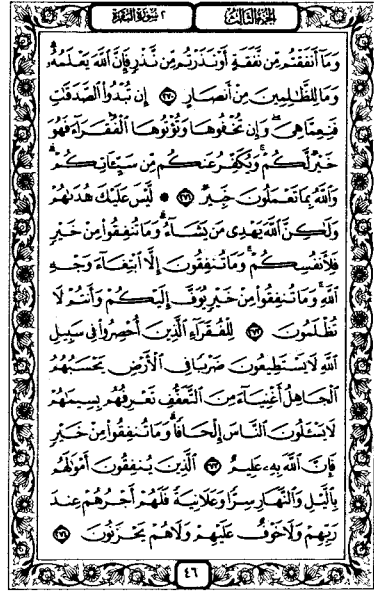 الجزء الثالث ٢ سورة البقرة
وَمَآ أَنفَقْتُم مِّن نَّفَقَةٍ أَوْ نَذَرْتُم مِّن نَّذْرٍ فَإِنَّ ٱللَّهَ يَعْلَمُهُۥ
وَمَا لِلظَّٰلِمِينَ مِنْ أَنصَارٍ ٢٧٠ إِن تُبْدُوا۟ ٱلصَّدَقَٰتِ
فَنِعِمَّا هِىَ ۖ وَإِن تُخْفُوهَا وَتُؤْتُوهَا ٱلْفُقَرَآءَ فَهُوَ
خَيْرٌ لَّكُمْ ۚ وَيُكَفِّرُ عَنكُم مِّن سَيِّـَٔاتِكُمْ ۗ
وَٱللَّهُ بِمَا تَعْمَلُونَ خَبِيرٌ ٢٧١ ۞ لَّيْسَ عَلَيْكَ هُدَىٰهُمْ
وَلَٰكِنَّ ٱللَّهَ يَهْدِى مَن يَشَآءُ ۗ وَمَا تُنفِقُوا۟ مِنْ خَيْرٍ
فَلِأَنفُسِكُمْ ۚ وَمَا تُنفِقُونَ إِلَّا ٱبْتِغَآءَ وَجْهِ
ٱللَّهِ ۚ وَمَا تُنفِقُوا۟ مِنْ خَيْرٍ يُوَفَّ إِلَيْكُمْ وَأَنتُمْ لَا
تُظْلَمُونَ ٢٧٢ لِلْفُقَرَآءِ ٱلَّذِينَ أُحْصِرُوا۟ فِى سَبِيلِ
ٱللَّهِ لَا يَسْتَطِيعُونَ ضَرْبًا فِى ٱلْأَرْضِ يَحْسَبُهُمُ
ٱلْجَاهِلُ أَغْنِيَآءَ مِنَ ٱلتَّعَفُّفِ تَعْرِفُهُم بِسِيمَٰهُمْ
لَا يَسْـَٔلُونَ ٱلنَّاسَ إِلْحَافًا ۗ وَمَا تُنفِقُوا۟ مِنْ خَيْرٍ
فَإِنَّ ٱللَّهَ بِهِۦ عَلِيمٌ ٢٧٣ ٱلَّذِينَ يُنفِقُونَ أَمْوَٰلَهُم
بِٱلَّيْلِ وَٱلنَّهَارِ سِرًّا وَعَلَانِيَةً فَلَهُمْ أَجْرُهُمْ عِندَ
رَبِّهِمْ وَلَا خَوْفٌ عَلَيْهِمْ وَلَا هُمْ يَحْزَنُونَ ٢٧٤
٤٦